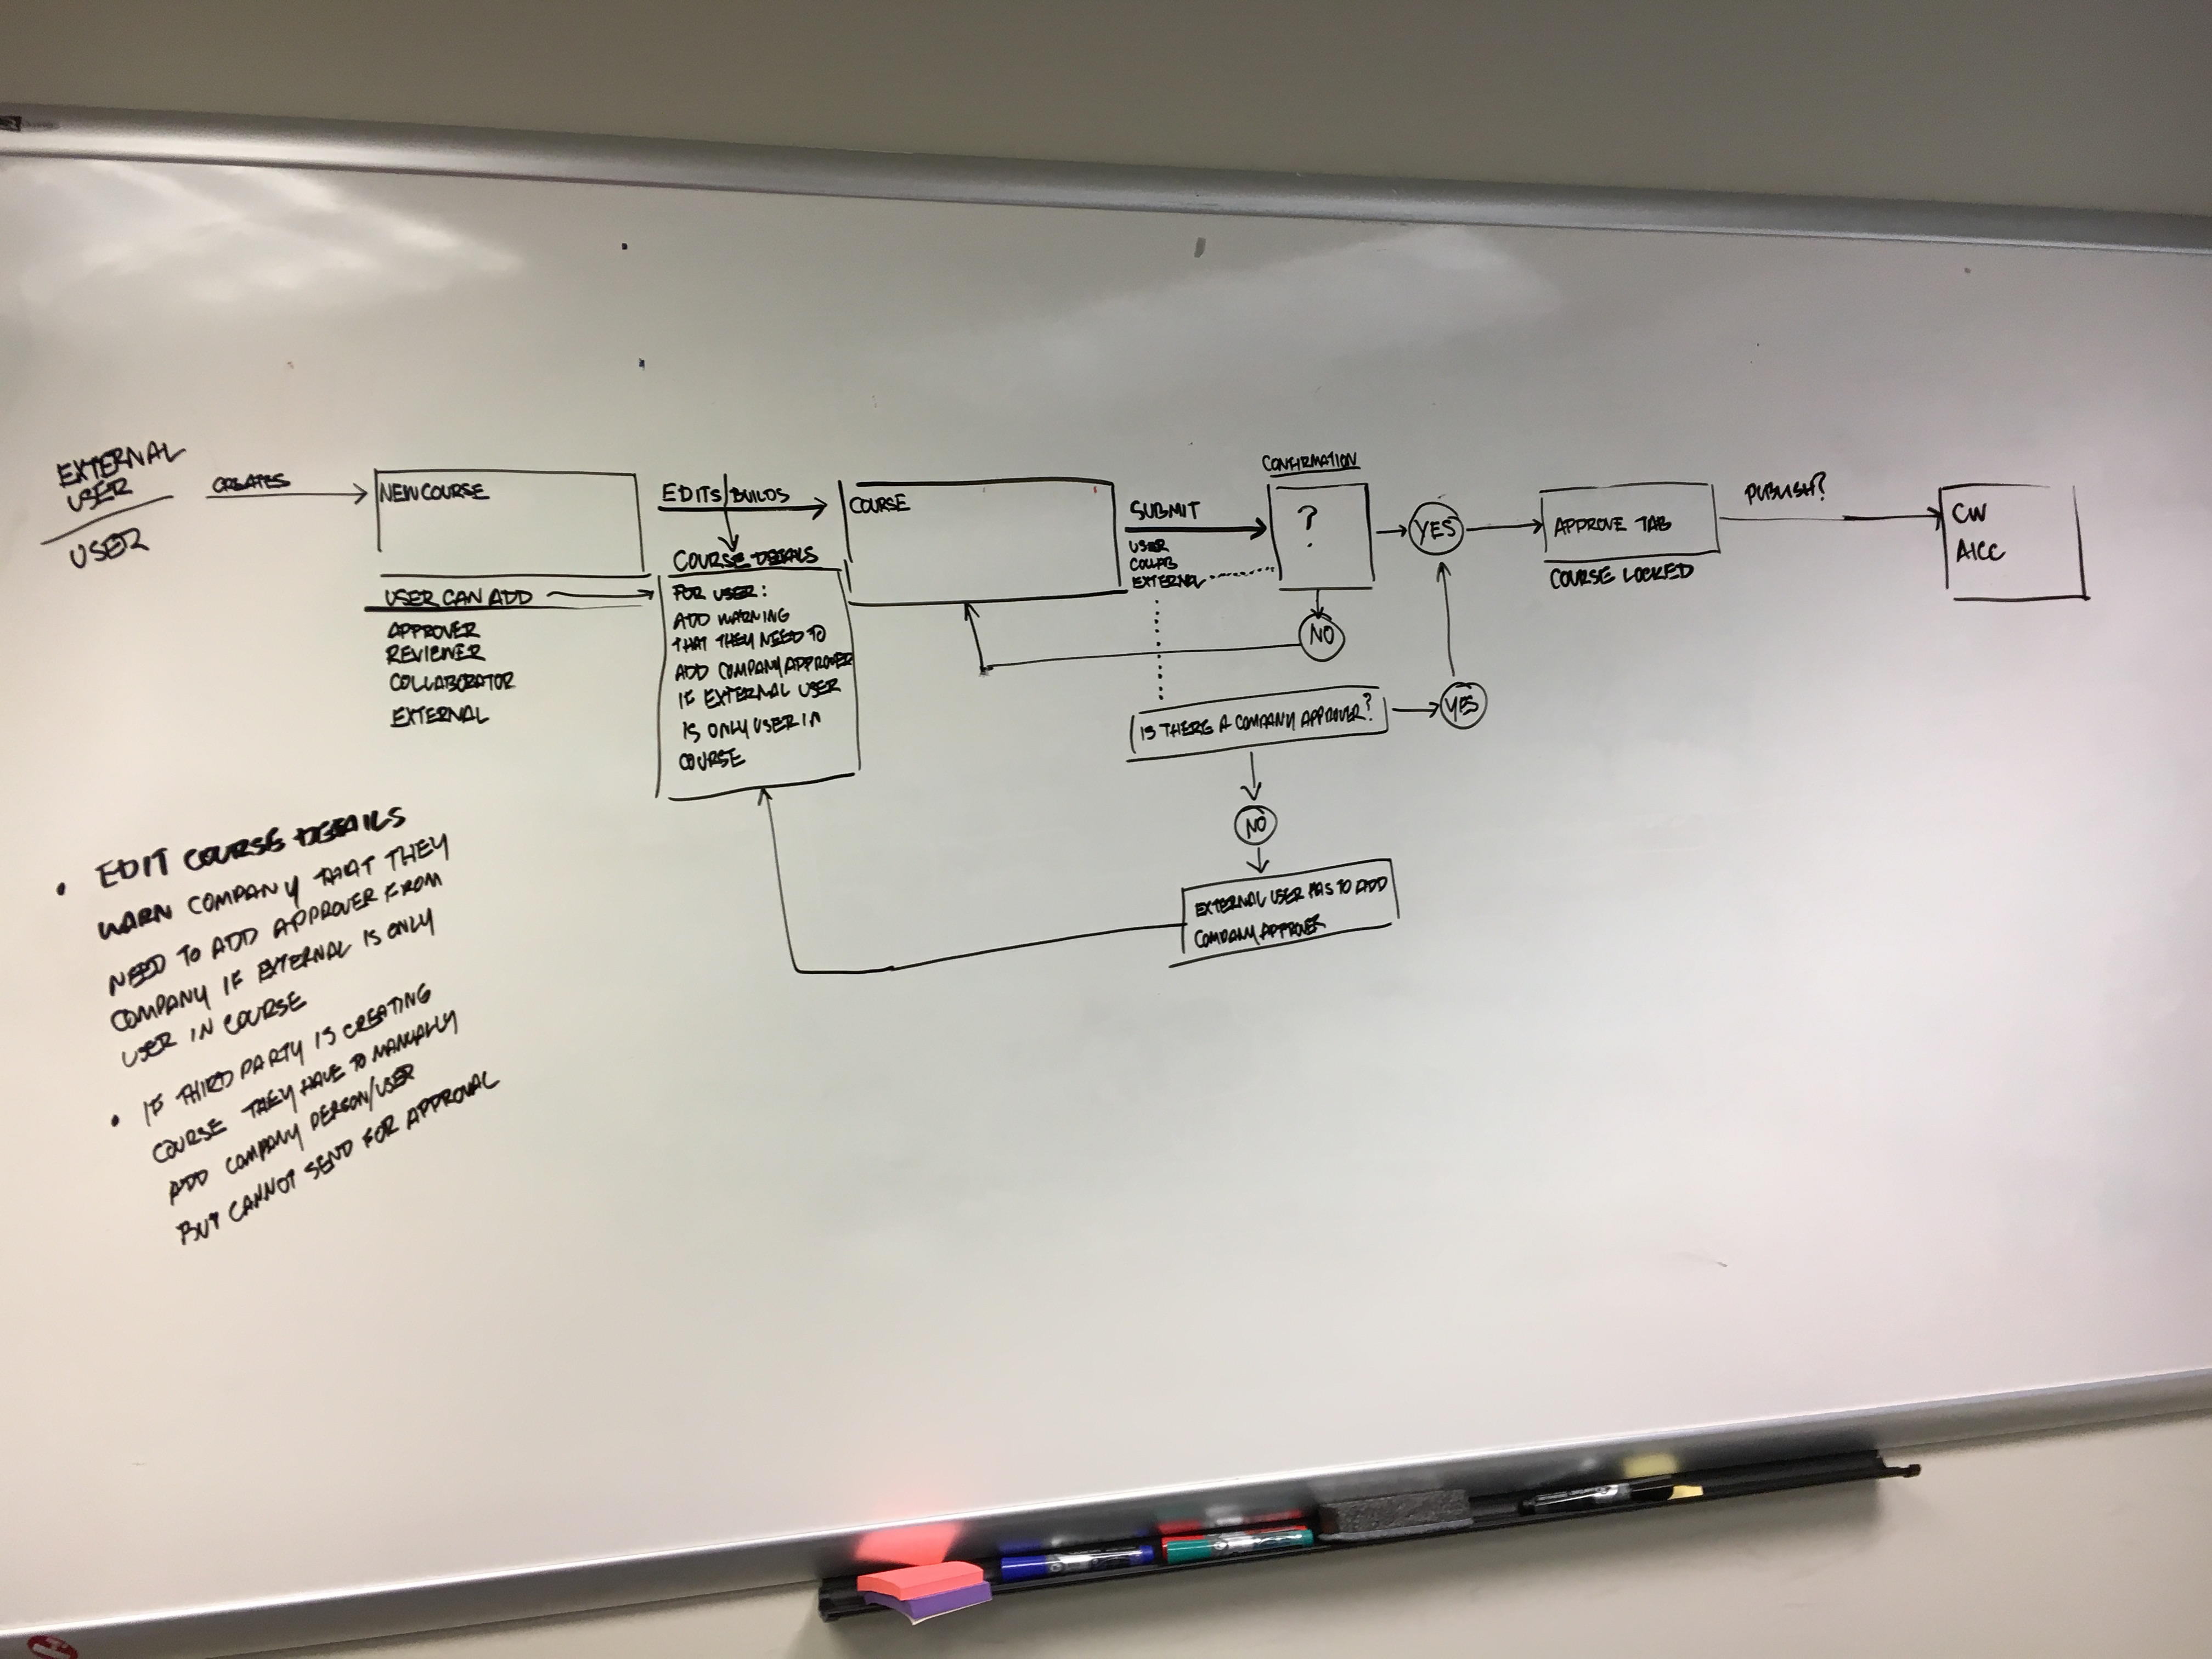 EXTERNAL
USER
USER
CREATES
NEW COURSE
USER CAN ADD
APPROVER
REVIEWER
COLLABORATOR
EXTERNAL
EDITS/BUILDS
COURSE DETAILS
FOR USER:
ADD WARNING
THAT THEY NEED TO
ADD COMPANY APPROVER
IF EXTERNAL USER
IS ONLY USER IN
COURSE
COURSE
SUBMIT
USER
COLLAB
EXTERNAL
CONFIRMATION
?
YES
NO
APPROVE TAB
COURSE LOCKED
PUBLISH?
CW
AICC
IS THERE A COMPANY APPROVER?
YES
NO
EXTERNAL USER HAS TO ADD
COMPANY APPROVER
• EDIT COURSE DETAILS
WARN COMPANY THAT THEY
NEED TO ADD APPROVER FROM
COMPANY IF EXTERNAL IS ONLY
USER IN COURSE
• IF THIRD PARTY IS CREATING
COURSE THEY HAVE TO MANUALLY
ADD COMPANY PERSON/USER
BUT CANNOT SEND FOR APPROVAL